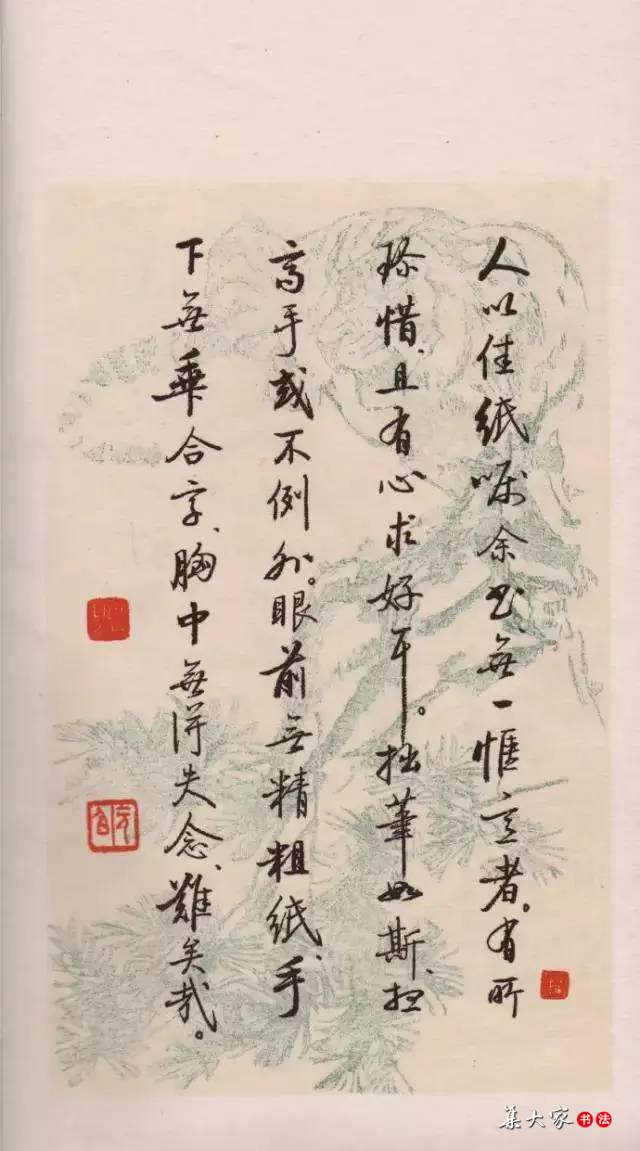 人以佳紙嘱余书無一惬意者。有所
珍惜、且有心求好耳。拙筆如斯、担
高手或不例外。眼前無精粗紙、手
下無乖合字、胸中無得失念、難矣哉。
集大家书法